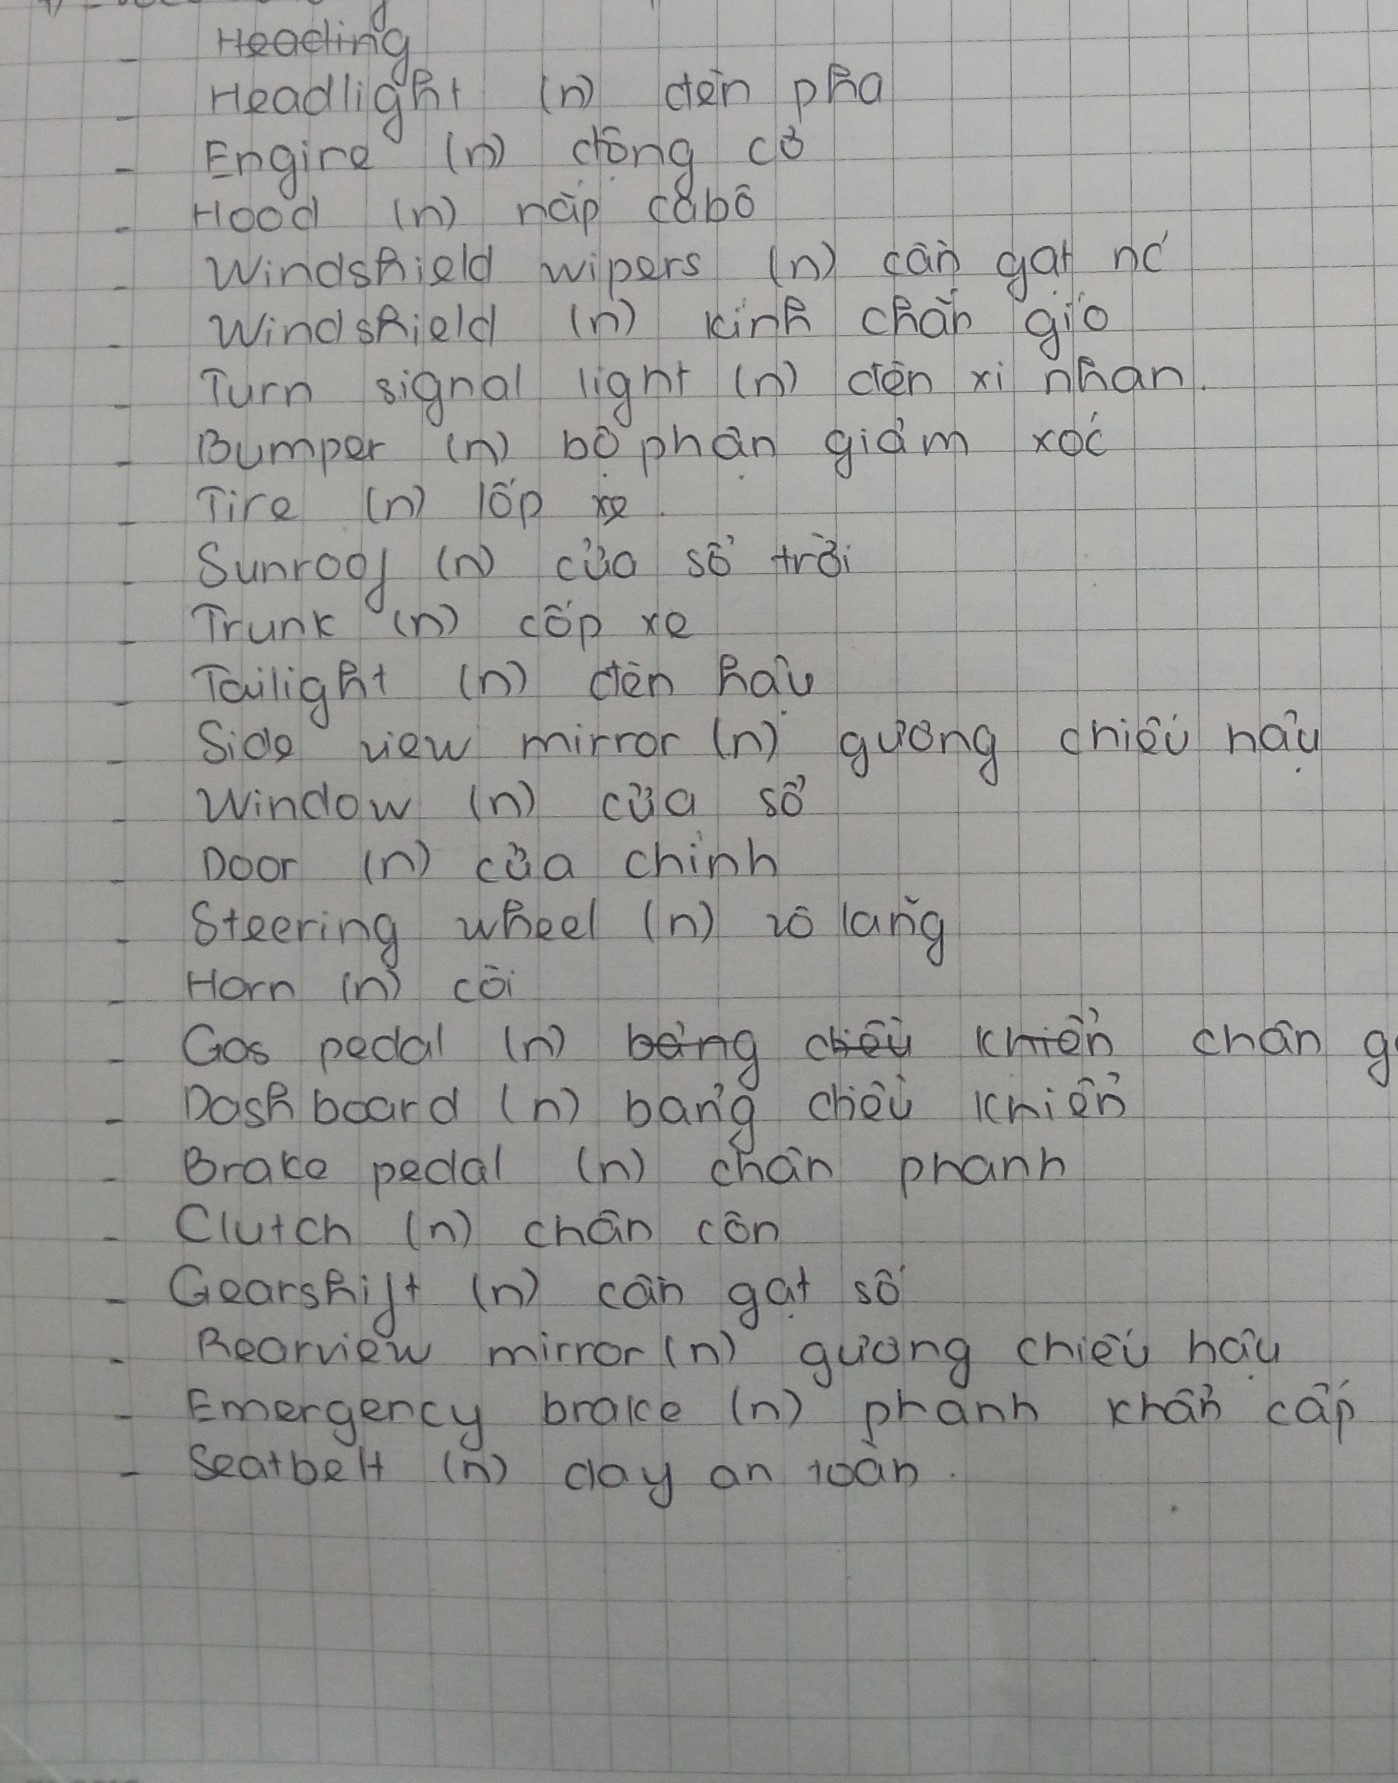 - Heading
- Headlight (n) đèn pha
- Engine (n) động cơ
- Hood (n) nắp cabô
- Windshield wipers (n) cần gạt nc'
- Windshield (n) kính chắn gió
- Turn signal light (n) đèn xi nhan.
- Bumper (n) bộ phận giảm xóc
- Tire (n) lốp xe.
- Sunroof (n) cửa sổ trời
- Trunk (n) cốp xe
- Tailight (n) đèn hậu
- Side view mirror (n) gương chiếu hậu
- Window (n) cửa sổ
- Door (n) cửa chính
- Steering wheel (n) vô lăng
- Horn (n) còi
- Gas pedal (n) bảng điều khiển chân
- Dashboard (n) bảng điều khiển
- Brake pedal (n) chân phanh
- Clutch (n) chân côn
- Gearshift (n) cần gạt số
- Rearview mirror (n) gương chiếu hậu
- Emergency brake (n) phanh khẩn cấp
- Seatbelt (n) day an toàn.